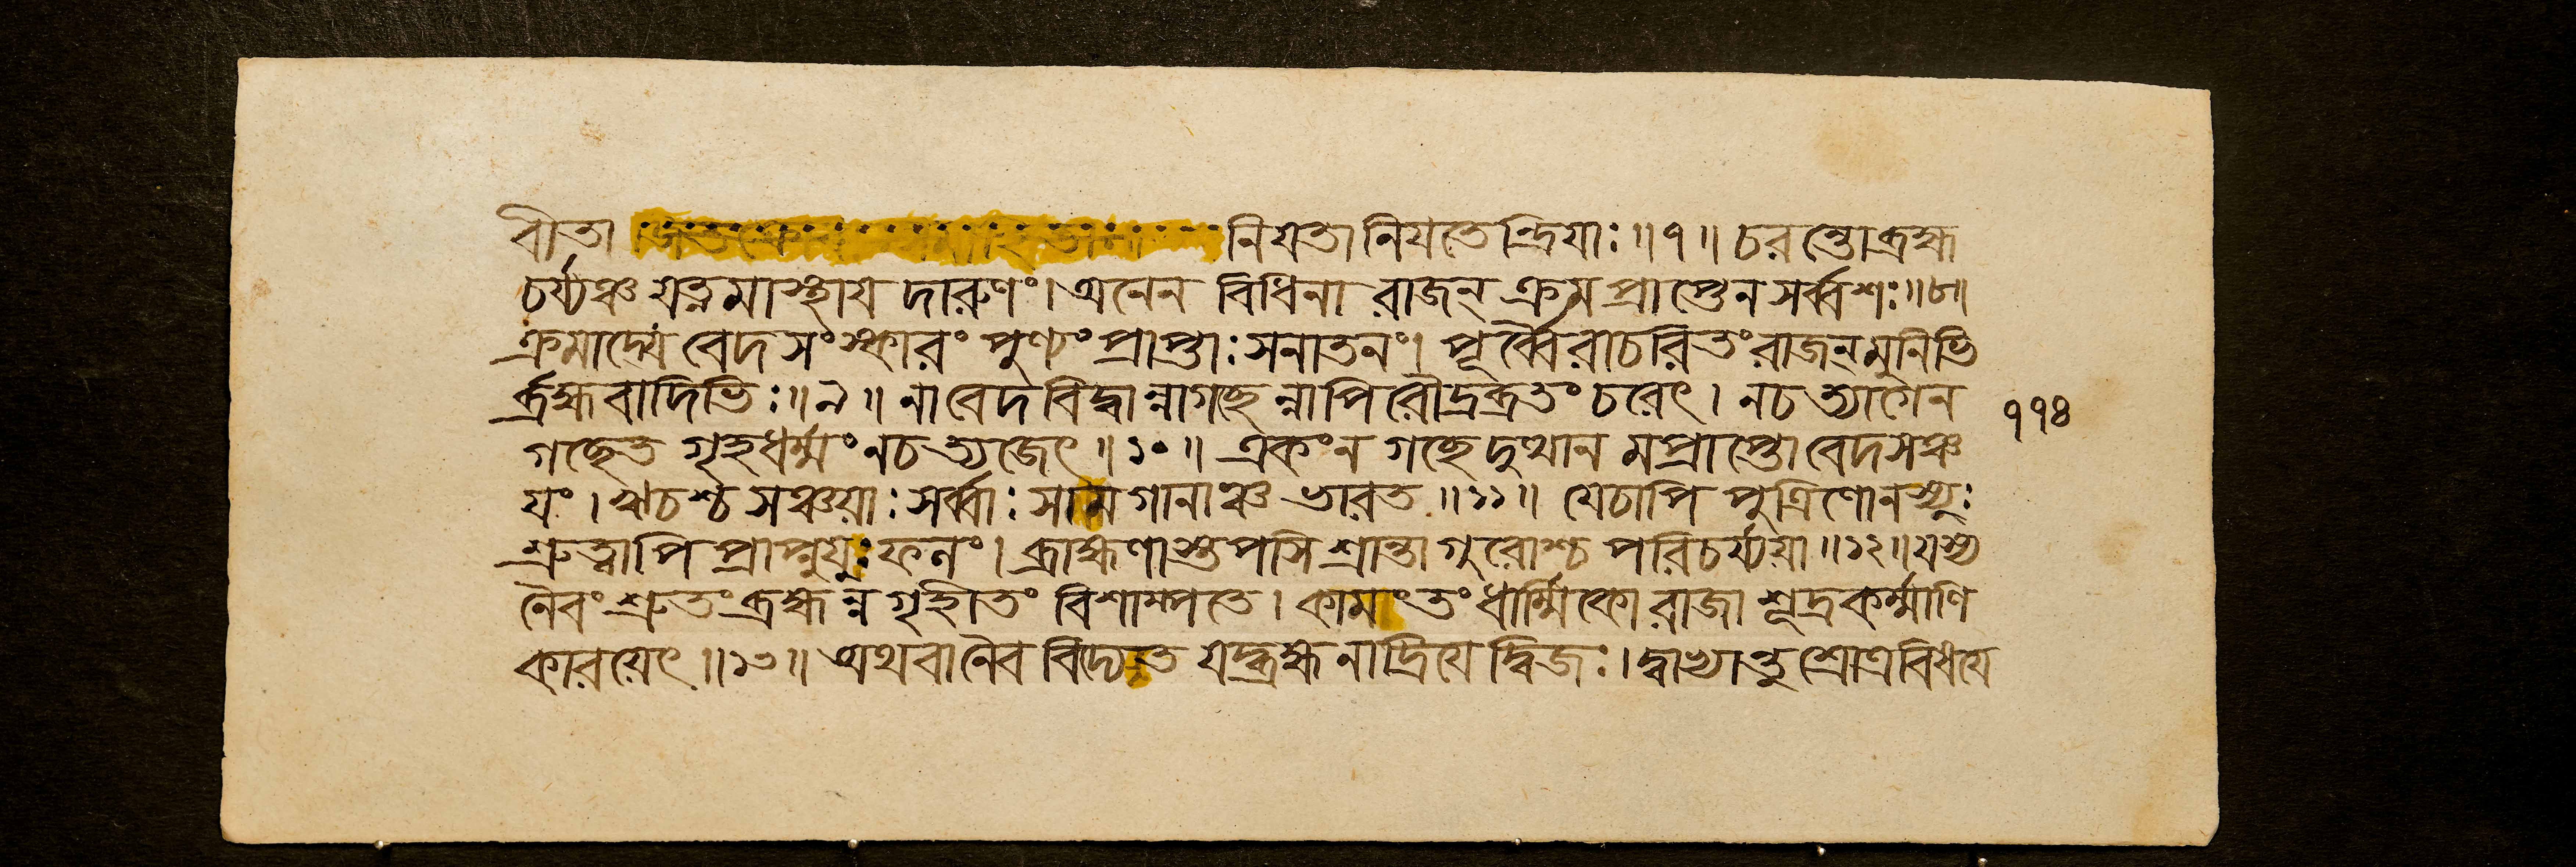 বীতা নিযতা নিযতেন্দ্রিযাঃ ॥৭॥ চরন্তো ব্রহ্ম
চর্য্যঞ্চ যত্নমাস্থায দারুণং। অনেন বিধিনা রাজন্ ক্রমপ্রাপ্তেন সর্ব্বশঃ ॥৮॥
ক্রমাদ্যেং বেদসংস্কারং পুণ্যং প্রাপ্তাঃ সনাতনং। পূর্ব্বৈরাচরিতং রাজন্ মুনিভি
র্ব্রহ্মবাদিভিঃ ॥৯॥ নাবেদবিদ্বান্নাগছেন্নাপি রৌদ্রব্রতং চরেৎ। নচ ত্যাগেন
গছেত গৃহধর্ম্মং নচ ত্যজেৎ ॥১০॥ একং ন গছেদুত্থানমপ্রাপ্তো বেদসঞ্চ
যং। ঋচশ্চ সঞ্চয়াঃ সর্ব্বাঃ সামগানাঞ্চ ভারত ॥১১॥ যেচাপি পুত্রিণো নস্যুঃ
শ্রুত্বাপি প্রাপ্নুয়ুঃ ফলং। ব্রাহ্মণাস্তপসি শ্রান্তা গুরোশ্চ পরিচর্য্যয়া ॥১২॥ যস্য
নৈবং শ্রুতং ব্রহ্ম ন গৃহীতং বিশাম্পতে। কামং তং ধার্ম্মিকো রাজা শূদ্রকর্ম্মাণি
কারয়েৎ ॥১৩॥ অথবা নৈব বিদ্যেত যদ্ব্রহ্ম নাদ্রিযেদ্দ্বিজঃ। দ্বাখ্যাস্তু শ্রোত্রবিধযে
১১৪